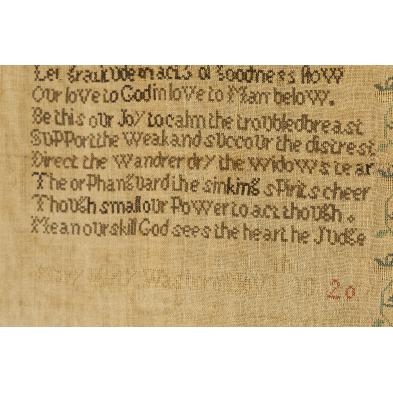 Let gratitude in acts of goodness flow
Our love to God in love to Man below.
Be this our Joy to calm the troubled breast
Support the Weak and succour the distrest
Direct the Wandrer dry the Widows tear
The orphan guard the sinking spirits cheer
Though small our Power to act though .
Mean our skill God sees the heart he Judge
20